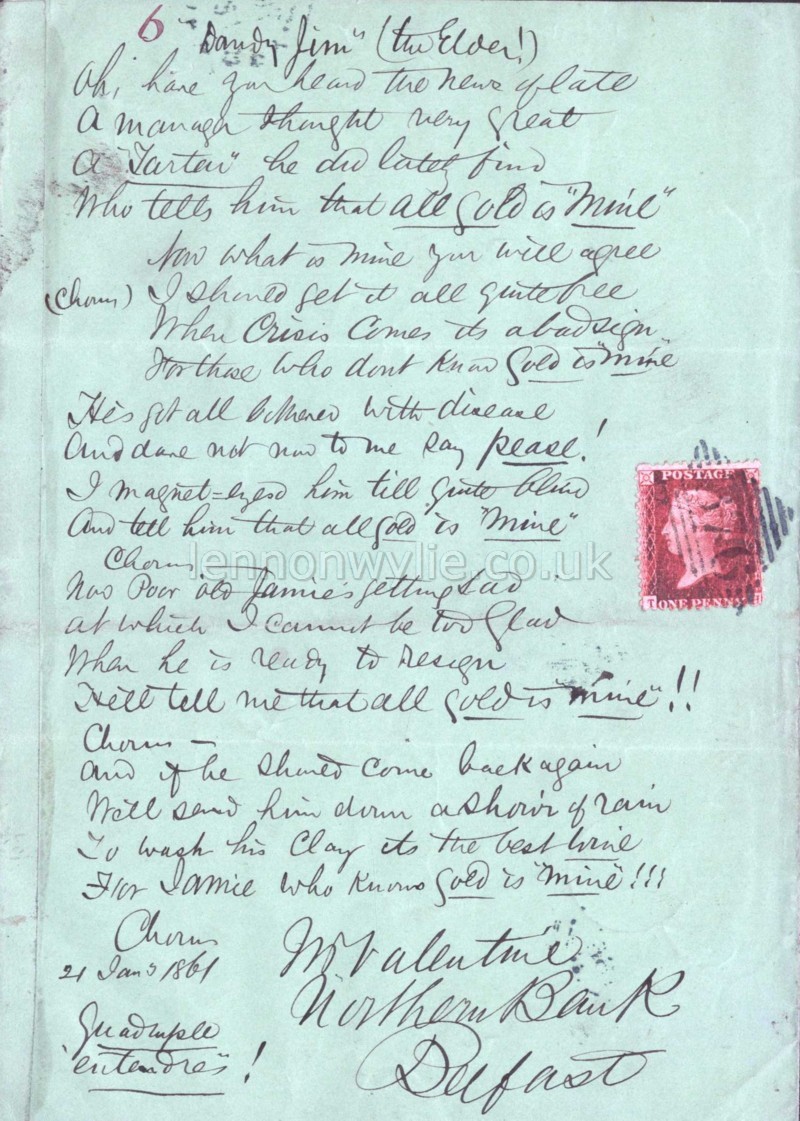 6 "Dandy Jim" (the Elder!)
Oh, have you heard the news of late
A manager thought very great
A "Tartar" he did lately find
Who tells him that all gold is "Mine"
Now what is mine you will agree
(Chorus) I should get it all quite free
When Crisis Comes its a bad sign
For those who dont know Gold is "mine"
He's got all bothered with disease
And dare not now to me say please!
I magnet=eyesd him till quite blind
And tell him that all gold is "Mine"
Chorus
Now Poor old Jamie's getting sad
at which I cannot be too Glad
When he is ready to resign
He'll tell me that all gold is "mine"!!
Chorus —
And if he should come back again
We'll send him down a show'r of rain
To wash his Clay its the best wine
For Jamie who knows Gold is "mine"!!!
Chorus
21 Jany 1861
Wm Valentine
Northern Bank
Belfast
Quadruple
"entendres"!
POSTAGE
ONE PENNY
T H
lennonwylie.co.uk